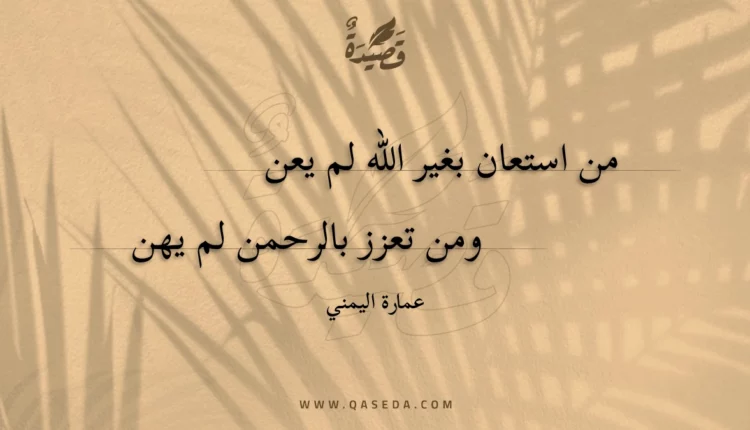 قَصِيْدَةٌ
من استعان بغير الله لم يعن
ومن تعزز بالرحمن لم يهن
عمارة اليمني
WWW.QASEDA.COM